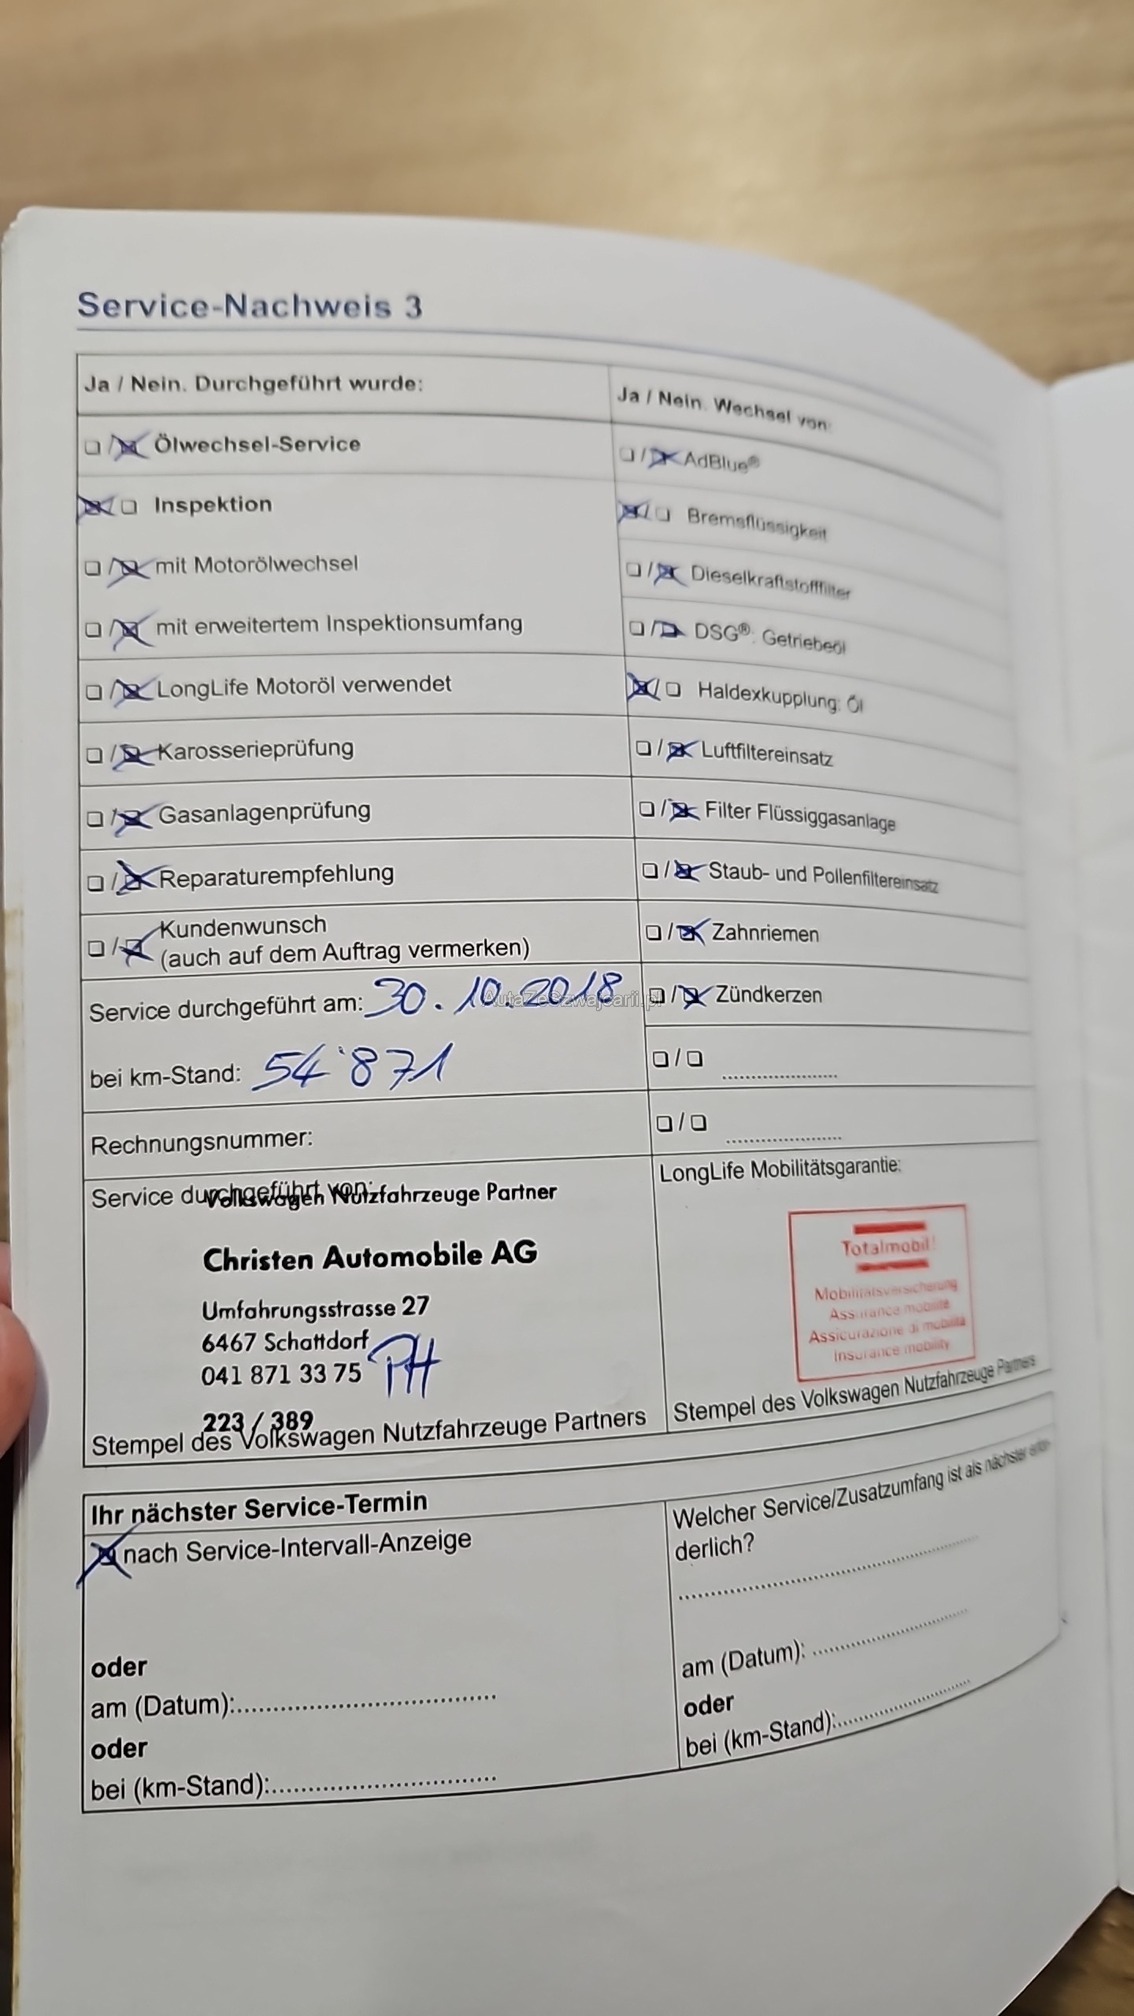 Service-Nachweis 3
Ja / Nein. Durchgeführt wurde:
☐ / ☒ Ölwechsel-Service
☒ / ☐ Inspektion
☐ / ☒ mit Motorölwechsel
☐ / ☒ mit erweitertem Inspektionsumfang
☐ / ☒ LongLife Motoröl verwendet
☐ / ☒ Karosserieprüfung
☐ / ☒ Gasanlagenprüfung
☐ / ☒ Reparaturempfehlung
☐ / ☒ Kundenwunsch
(auch auf dem Auftrag vermerken)
Service durchgeführt am: 30.10.2018
bei km-Stand: 54'871
Rechnungsnummer:
Service durchgeführt von:
Volkswagen Nutzfahrzeuge Partner
Christen Automobile AG
Umfahrungsstrasse 27
6467 Schattdorf
041 871 33 75
PH
223 / 389
Stempel des Volkswagen Nutzfahrzeuge Partners
Ja / Nein. Wechsel von:
☐ / ☒ AdBlue®
☒ / ☐ Bremsflüssigkeit
☐ / ☒ Dieselkraftstofffilter
☐ / ☒ DSG®: Getriebeöl
☒ / ☐ Haldexkupplung: Öl
☐ / ☒ Luftfiltereinsatz
☐ / ☒ Filter Flüssiggasanlage
☐ / ☒ Staub- und Pollenfiltereinsatz
☐ / ☒ Zahnriemen
☐ / ☒ Zündkerzen
☐ / ☐ ....................
☐ / ☐ ....................
LongLife Mobilitätsgarantie:
Totalmobil!
Mobilitätsversicherung
Assurance mobilité
Assicurazione di mobilità
Insurance mobility
Stempel des Volkswagen Nutzfahrzeuge Partners
Ihr nächster Service-Termin
☒ nach Service-Intervall-Anzeige
oder
am (Datum):....................
oder
bei (km-Stand):....................
Welcher Service/Zusatzumfang ist als nächster erfor-
derlich?
....................
am (Datum): ....................
oder
bei (km-Stand):....................
AutaZeSzwajcarii.pl